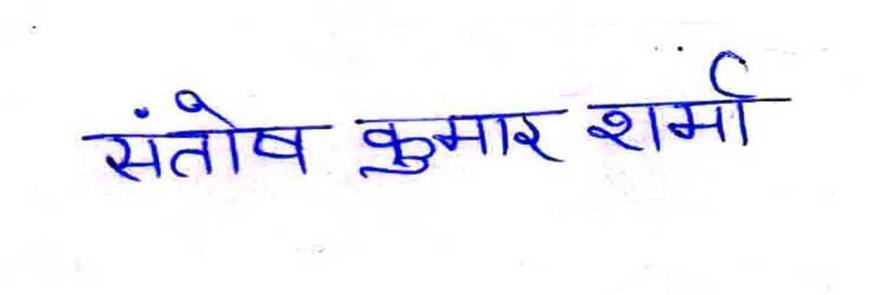 संतोष कुमार शर्मा